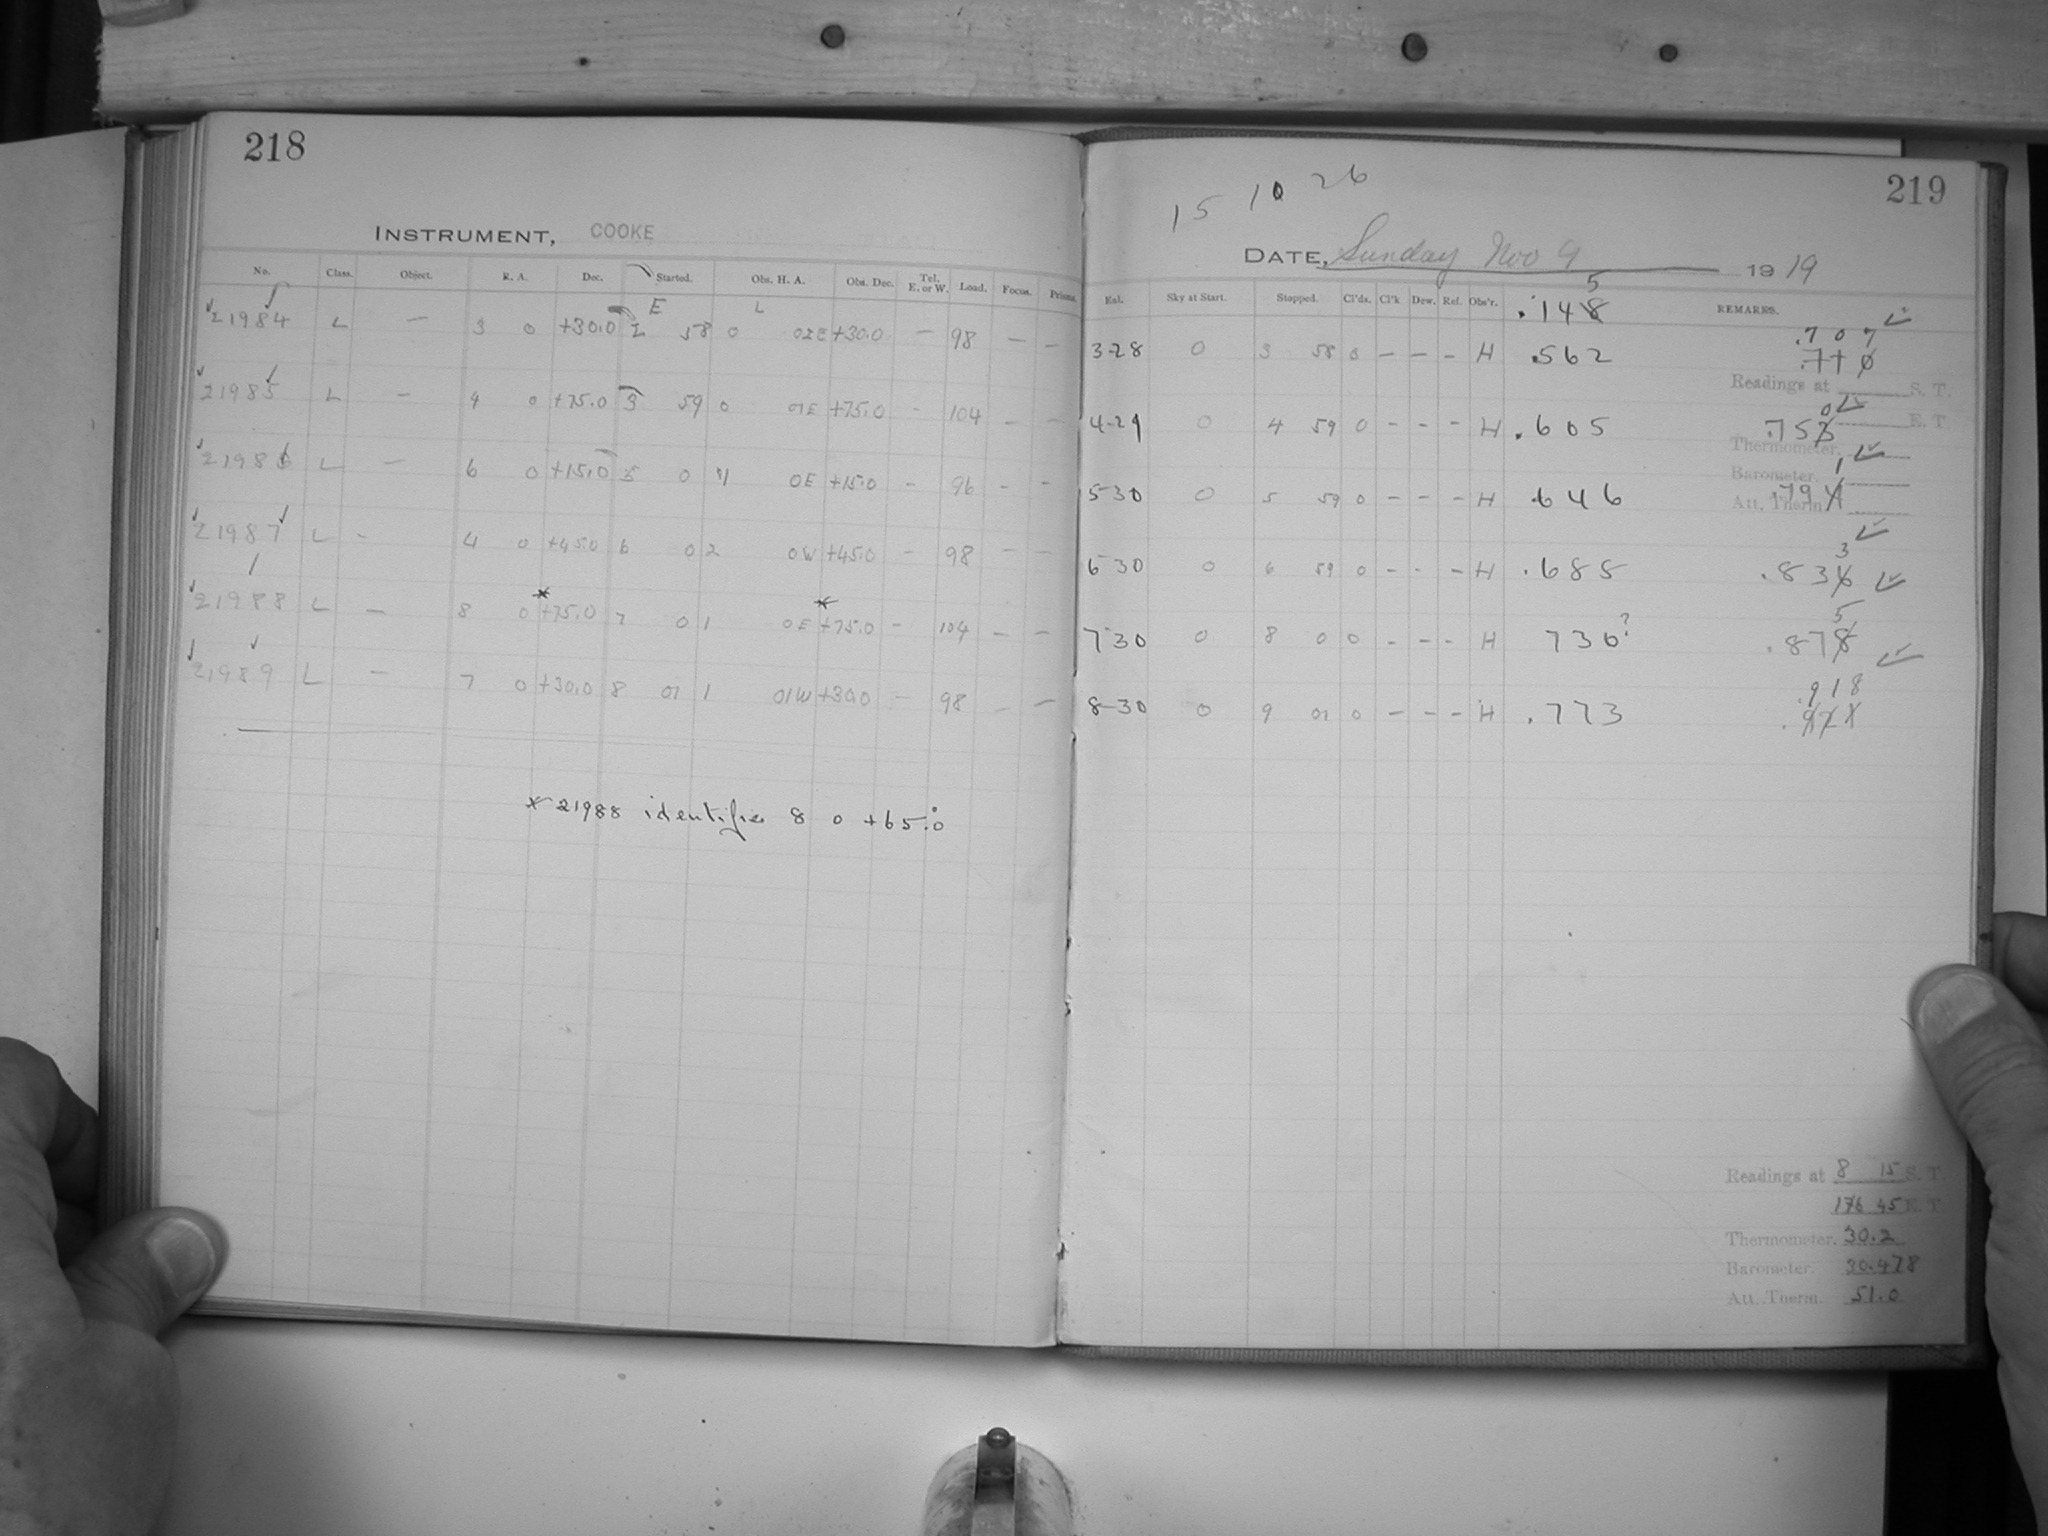 218
INSTRUMENT, COOKE
No. Class. Object. R. A. Dec. Started. Obs. H. A. Obs. Dec. Tel. E. or W. Load. Focus. Prisms.
E L
21984 L — 3 0 +30.0 2 58 0 02E +30.0 — 98 — —
21985 L — 4 0 +75.0 3 59 0 01E +75.0 - 104 — —
21986 L — 6 0 +15.0 5 0 0E +15.0 - 96 - -
21987 L - 4 0 +45.0 6 0 2 0W +45.0 - 98 - -
21988 L — 8 0 *+75.0 7 0 1 0E *+75.0 - 104 — —
21989 L — 7 0 +30.0 8 01 1 01W +30.0 — 98 — —
* 21988 identifies 8 0 +65.0
219
15 10 26
DATE, Sunday Nov 9 1919
5
Exl. Sky at Start. Stopped. Cl'ds. Cl'k Dew. Ref. Obs'r. .148 REMARKS.
.707
3-28 0 3 58 0 — — - H .562 .710
Readings at S. T.
0
4-29 0 4 59 0 - - - H .605 .753
E. T.
Thermometer.
Barometer. 1
5-30 0 5 59 0 - - - H .646 .794
Att. Therm.
3
6 30 0 6 59 0 - - - H .685 .836
5
7 30 0 8 0 0 - - - H 730? .878
.918
8-30 0 9 01 0 - - - H .773
Readings at 8 15 S. T.
45 E. T.
Thermometer. 30.2
Barometer. 30.478
Att. Therm. 51.0